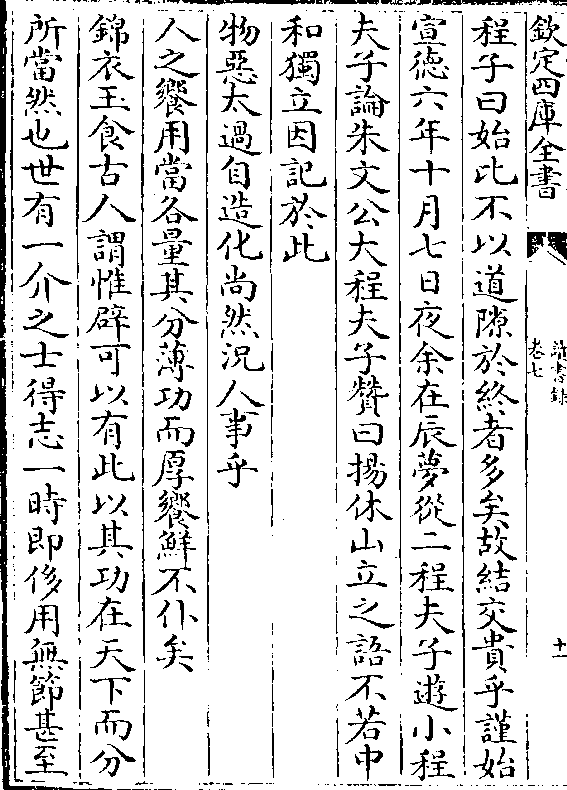 欽定四庫全書
讀書錄
卷七
十一
程子曰始比不以道隙於終者多矣故結交貴乎謹始
宣徳六年十月七日夜余在辰夢從二程夫子遊小程
夫子論朱文公大程夫子贊曰揚休山立之語不若中
和獨立因記於此
物惡太過自造化尚然況人事乎
人之饗用當各量其分薄功而厚饗鮮不仆矣
錦衣玉食古人謂惟辟可以有此以其功在天下而分
所當然也世有一介之士得志一時即侈用無節甚至